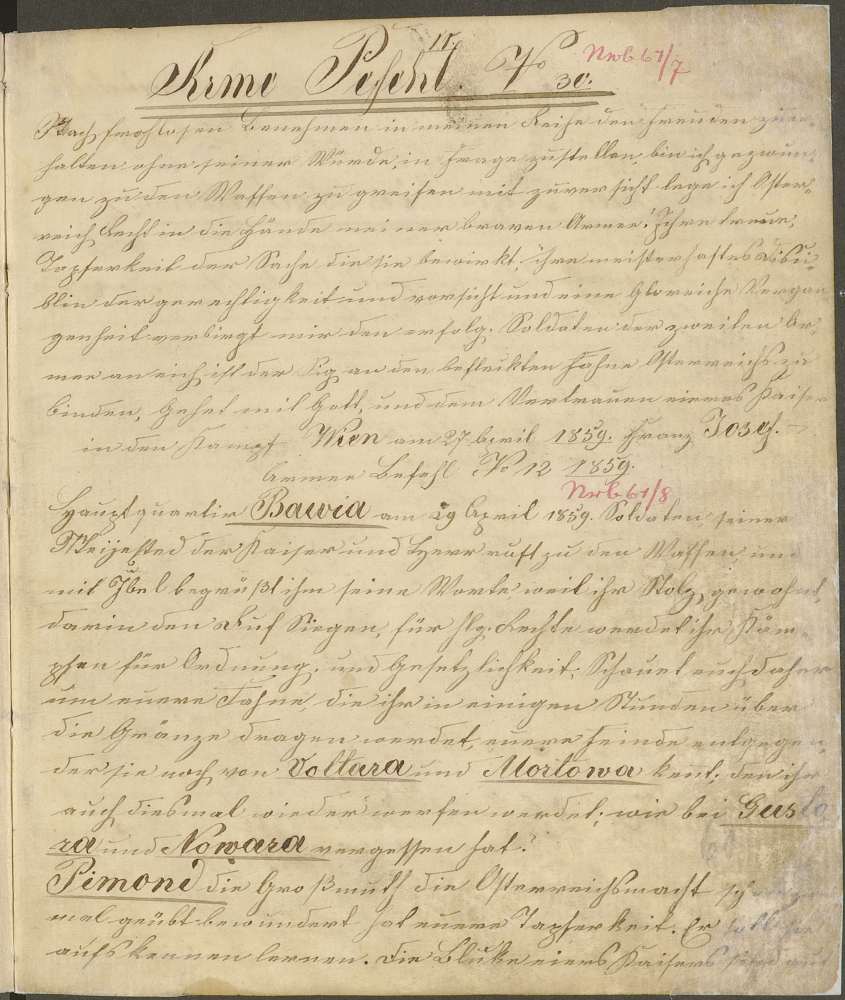 11.
Arme Befehl. No 30.
Nrb 61/7
Nach fruhlosen Benehmen in meinen Reihe den Freuden zuer-
halten ohne seiner Würde, in Frage zustellen, bin ich gezwun-
gen zu den Waffen zu greifen mit zuversicht lege ich Öster-
reich Recht in die Hände meiner braven Armee! Ihre treue,
Tapferkeit der Sache die sie bewirkt, ihre meisterhaftes Disci-
blin der gerechtigkeit und vorsicht und eine Gloreiche Vergan
genheit verbirgt mir den erfolg. Soldaten der zweiten Ar-
mee an eich ist der Sig an den befleckten Fahne Österreichs zu
binden, Gehet mit Gott, und dem Vertrauen eieres Kaiser
in den Kampf Wien am 27 April 1859. Franz Josef.
Armee Befehl No 12 1859.
Nrb 61/8
Hauptquartir Bawia am 29 April 1859. Soldaten seiner
Meijested der Kaiser und Herr ruft zu den Waffen und
mit Jbel begrüßt ihm seine Worte weil ihr Stolz gewohnt,
darin den Ruf Siegen, für Recht werdet ihr Käm-
pfen für Ordnung, und Gesetzlichkeit; Schauet euch daher
um euere Fahne, die ihr in einigen Stunden über
die Gränze dragen werdet, euere Feinde entgegen,
der sie noch von Vollara und Mortowa kent; den ihr
auch diesmal wieder werfen werdet; wie bei Gusto
za und Nowara vergessen hat!
Pimond die Großmuth die Österreichsmacht
mal geübt bewundert hat euere Tapferkeit. Er soll sie
aufs kennen lernen. Die Blicke eiers Kaisers sind auf